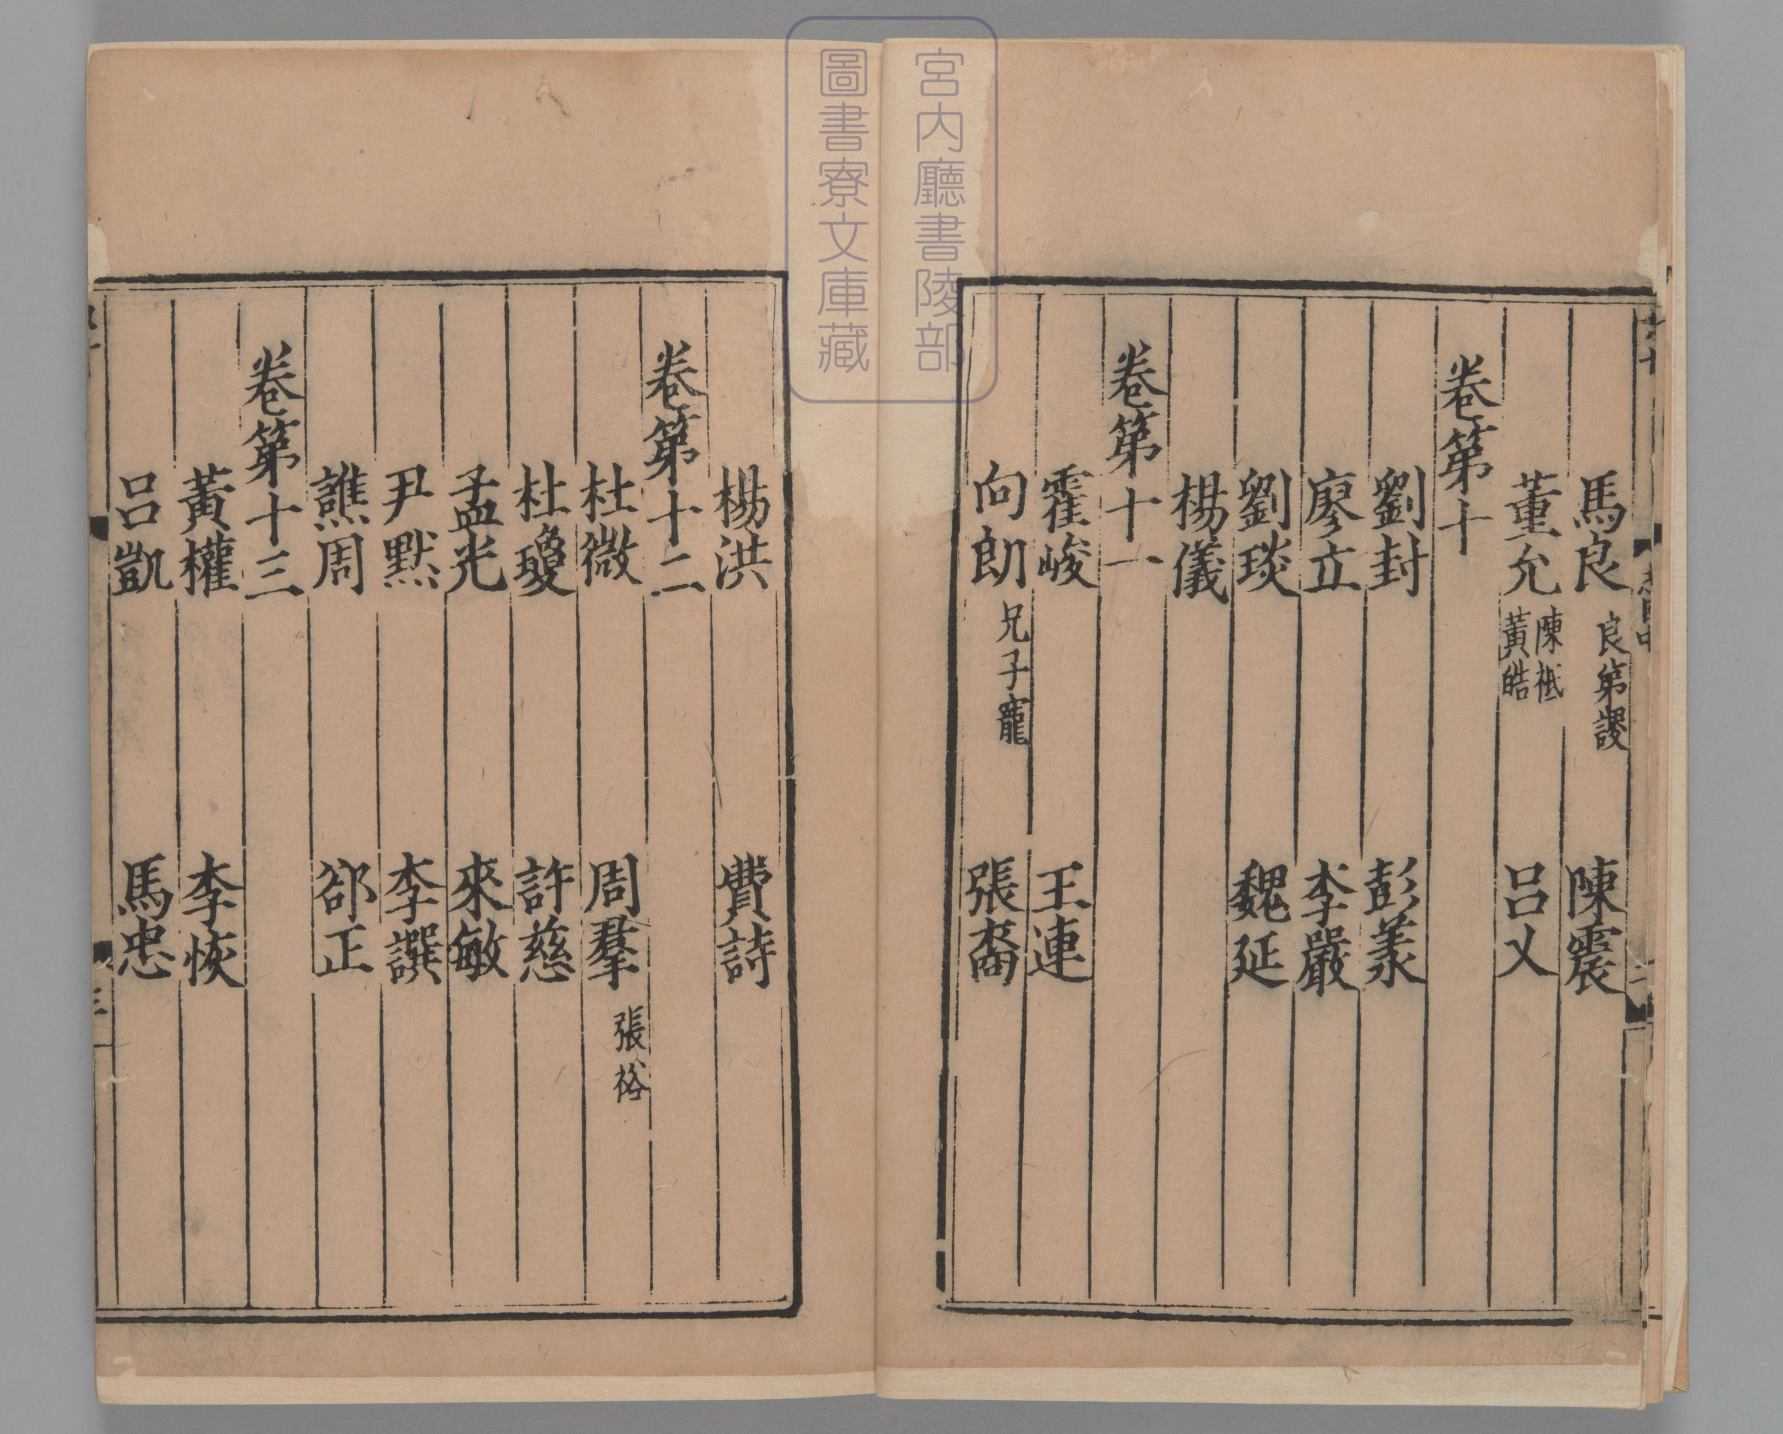 宮内廳書陵部
圖書寮文庫藏
馬良 良第謖 陳震
董允 陳祗 黃皓 吕乂
卷第十
劉封 彭羕
廖立 李嚴
劉琰 魏延
楊儀
卷第十一
霍峻 王連
向朗 兄子寵 張裔
楊洪 費詩
卷第十二
杜微 周羣 張裕
杜瓊 許慈
孟光 來敏
尹默 李譔
譙周 郤正
卷第十三
黃權 李恢
吕凱 馬忠
三